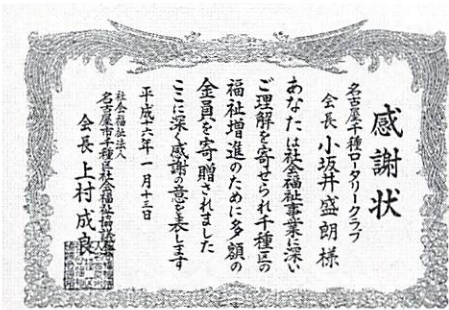 感謝状
名古屋千種ロータリークラブ
会長 小坂井盛朗 様
あなたは社会福祉事業に深い
ご理解を寄せられ千種区の
福祉増進のために多額の
金員を寄贈されました
ここに深く感謝の意を表します
平成十六年一月十三日
社会福祉法人
名古屋市千種区社会福祉協議会
会長 上村成良